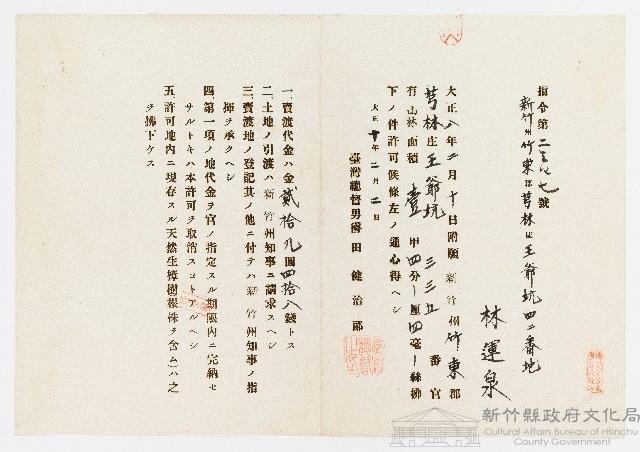 指令第二三七七號
新竹州竹東郡芎林庄王爺坑四二番地
林運泉
大正八年二月十日附願新竹州竹東郡
芎林庄王爺坑三三五番官
有山林面積壹甲四分一厘四毫一絲拂
下ノ件許可候條左ノ通心得ヘシ
大正十年二月二日
臺灣總督男爵田健治郎
一、賣渡代金ハ金貳拾九圓四拾八錢トス
二、土地ノ引渡ハ新竹州知事ニ請求スヘシ
三、賣渡地ノ登記其ノ他ニ付テハ新竹州知事ノ指
揮ヲ承クヘシ
四、第一項ノ地代金ヲ官ノ指定スル期限內ニ完納セ
サルトキハ本許可ヲ取消スコトアルヘシ
五、許可地內ニ現存スル天然生樟樹(根株ヲ含ム)ハ之
ヲ拂下ケス
新竹縣政府文化局
Cultural Affairs Bureau of Hsinchu
County Government